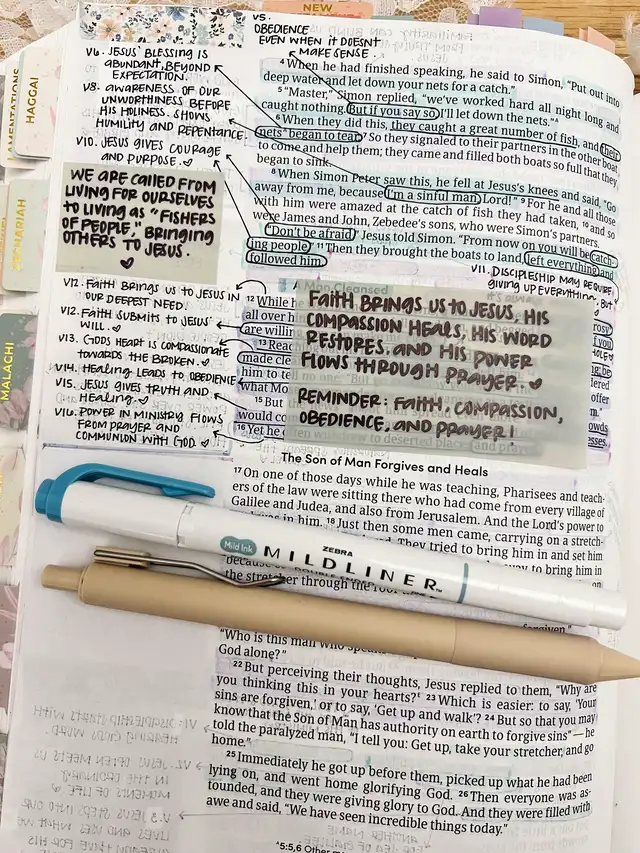 NEW
LAMENTATIONS
HAGGAI
ZECHARIAH
MALACHI
V5.
OBEDIENCE
EVEN WHEN IT DOESN'T
MAKE SENSE.
V6. JESUS' BLESSING IS
ABUNDANT, BEYOND
EXPECTATION.
V8. AWARENESS OF OUR
UNWORTHINESS BEFORE
HIS HOLINESS. SHOWS
HUMILITY AND REPENTANCE.
V10. JESUS GIVES COURAGE
AND PURPOSE. ♡
WE ARE CALLED FROM
LIVING FOR OURSELVES
TO LIVING AS "FISHERS
OF PEOPLE," BRINGING
OTHERS TO JESUS.
♡
V12. FAITH BRINGS US TO JESUS IN
OUR DEEPEST NEED.
V12. FAITH SUBMITS TO JESUS'
WILL. ♡
V13. GODS HEART IS COMPASSIONATE
TOWARDS THE BROKEN. ♡
V14. HEALING LEADS TO OBEDIENCE
V15. JESUS GIVES TRUTH AND
HEALING. ♡
V16. POWER IN MINISTRY FLOWS
FROM PRAYER AND
COMMUNION WITH GOD. ♡
4 When he had finished speaking, he said to Simon, "Put out into
deep water and let down your nets for a catch."
5 "Master," Simon replied, "we've worked hard all night long and
caught nothing. But if you say so, I'll let down the nets."A
6 When they did this, they caught a great number of fish, and their
nets B began to tear. 7 So they signaled to their partners in the other boat
to come and help them; they came and filled both boats so full that they
began to sink.
8 When Simon Peter saw this, he fell at Jesus's knees and said, "Go
away from me, because I'm a sinful man, Lord!" 9 For he and all those
with him were amazed at the catch of fish they had taken, 10 and so
were James and John, Zebedee's sons, who were Simon's partners.
"Don't be afraid," Jesus told Simon. "From now on you will be catch-
ing people." 11 Then they brought the boats to land, left everything, and
followed him.
V11. DISCIPLESHIP MAY REQUIRE
GIVING UP EVERYTHING, BUT
A Man Cleansed
12 While he
all over hi
are willin
13 Reac
made cle
him to tell no one. "But
what Mo
15 But
would co
16 Yet he often withdrew to deserted places and prayed.
FAITH BRINGS US TO JESUS, HIS
COMPASSION HEALS, HIS WORD
RESTORES, AND HIS POWER
FLOWS THROUGH PRAYER. ♡
REMINDER: FAITH, COMPASSION,
OBEDIENCE, AND PRAYER!
The Son of Man Forgives and Heals
17 On one of those days while he was teaching, Pharisees and teach-
ers of the law were sitting there who had come from every village of
Galilee and Judea, and also from Jerusalem. And the Lord's power to
in him. 18 Just then some men came, carrying on a stretch-
They tried to bring him in and set him
way to bring him in
because
on
the stretcher through the roof
Mild Ink
ZEBRA
MILDLINER™
forgiven."
"Who is this man who speaks
God alone?"
22 But perceiving their thoughts, Jesus replied to them, "Why are
you thinking this in your hearts? E 23 Which is easier: to say, 'Your
sins are forgiven,' or to say, 'Get up and walk'? 24 But so that you may
know that the Son of Man has authority on earth to forgive sins" — he
told the paralyzed man, "I tell you: Get up, take your stretcher, and go
home."
25 Immediately he got up before them, picked up what he had been
lying on, and went home glorifying God. 26 Then everyone was as-
tounded, and they were giving glory to God. And they were filled with
awe and said, "We have seen incredible things today."
A 5:5,6 Other m